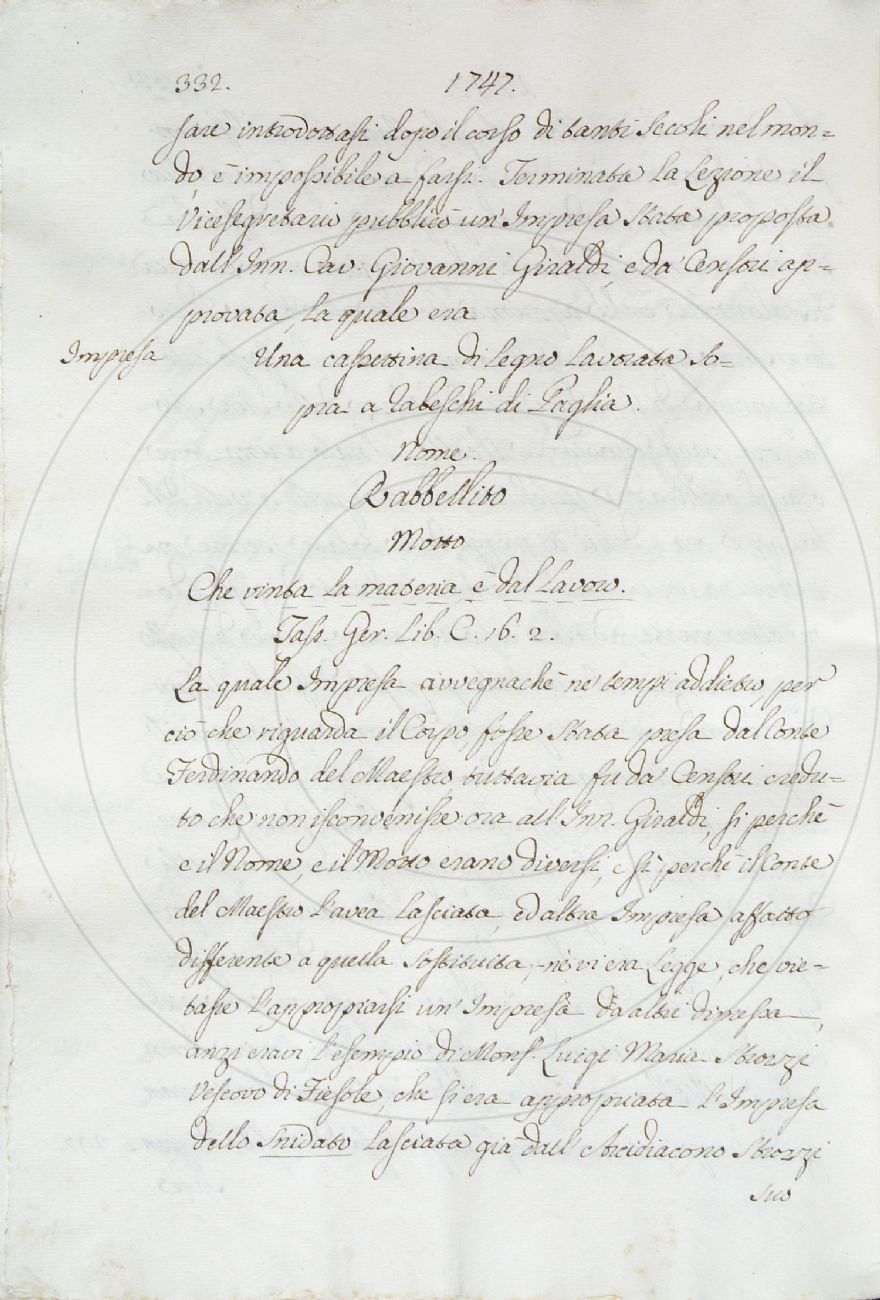 332. 1747.
sare introdottasi dopo il corso di tanti Secoli nel mon=
do, è impossibile a farsi. Terminata la Lezione il
Vicesegretario pubblicò un' Impresa stata proposta
dall' Inn. Cav. Giovanni Giraldi, e da' Censori ap=
provata, la quale era
Impresa Una cassettina di legno lavorata so=
pra a rabeschi di Paglia.
Nome.
Rabbellito
Motto
Che vinta la materia è dal lavoro.
Tass. Ger. Lib. C. 16. 2.
La quale Impresa avvegnachè ne' tempi addietro, per
ciò che riguarda il Corpo, fosse stata presa dal Conte
Ferdinando del Maestro, tuttavia fu da' Censori credu=
to che non isconvenisse ora all' Inn. Giraldi, sì perchè
e il Nome, e il Motto erano diversi, e sì perchè il Conte
del Maestro l'avea lasciata, ed altra Impresa affatto
differente a quella sostituita, nè vi era Legge, che vie=
tasse l'appropiarsi un' Impresa da altri dimessa,
anzi eravi l'esempio di Mons.r Luigi Maria Strozzi
Vescovo di Fiesole, che si era appropriata l'Impresa
dello Snidato lasciata già dall' Arcidiacono Strozzi
suo